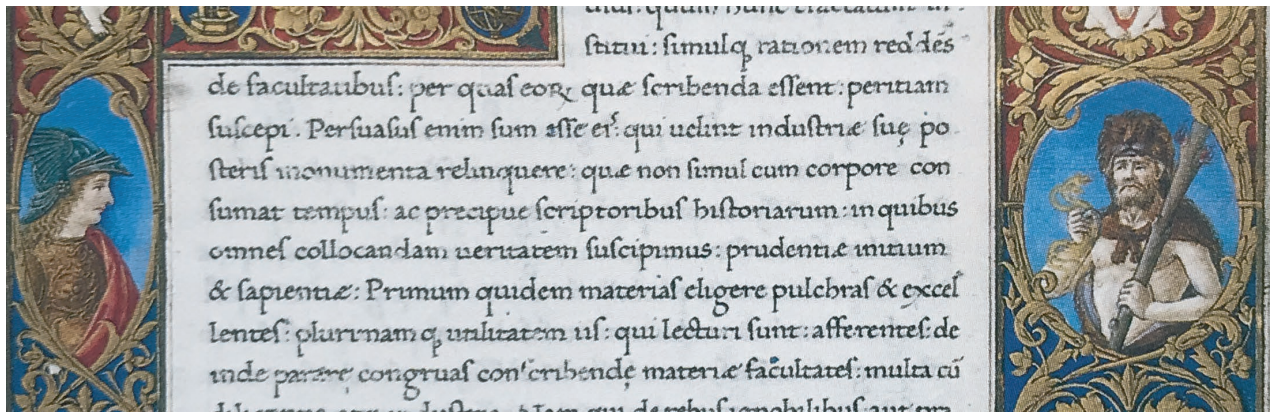 stitui: simulq; rationem reddēs
de facultatibus: per quas eoꝝ quæ scribenda essent: peritiam
suscepi. Persuasus enim sum esse eis: qui uelint industriæ suę po
steris monumenta relinquere: quæ non simul cum corpore con
sumat tempus: ac precipue scriptoribus historiarum: in quibus
omnes collocandam ueritatem suscipimus: prudentiæ initium
& sapientiæ: Primum quidem materias eligere pulchras & excel
lentes: plurimam q; utilitatem iis: qui lecturi sunt: afferentes: de
inde parare congruas conscribendę materiæ facultates: multa cū